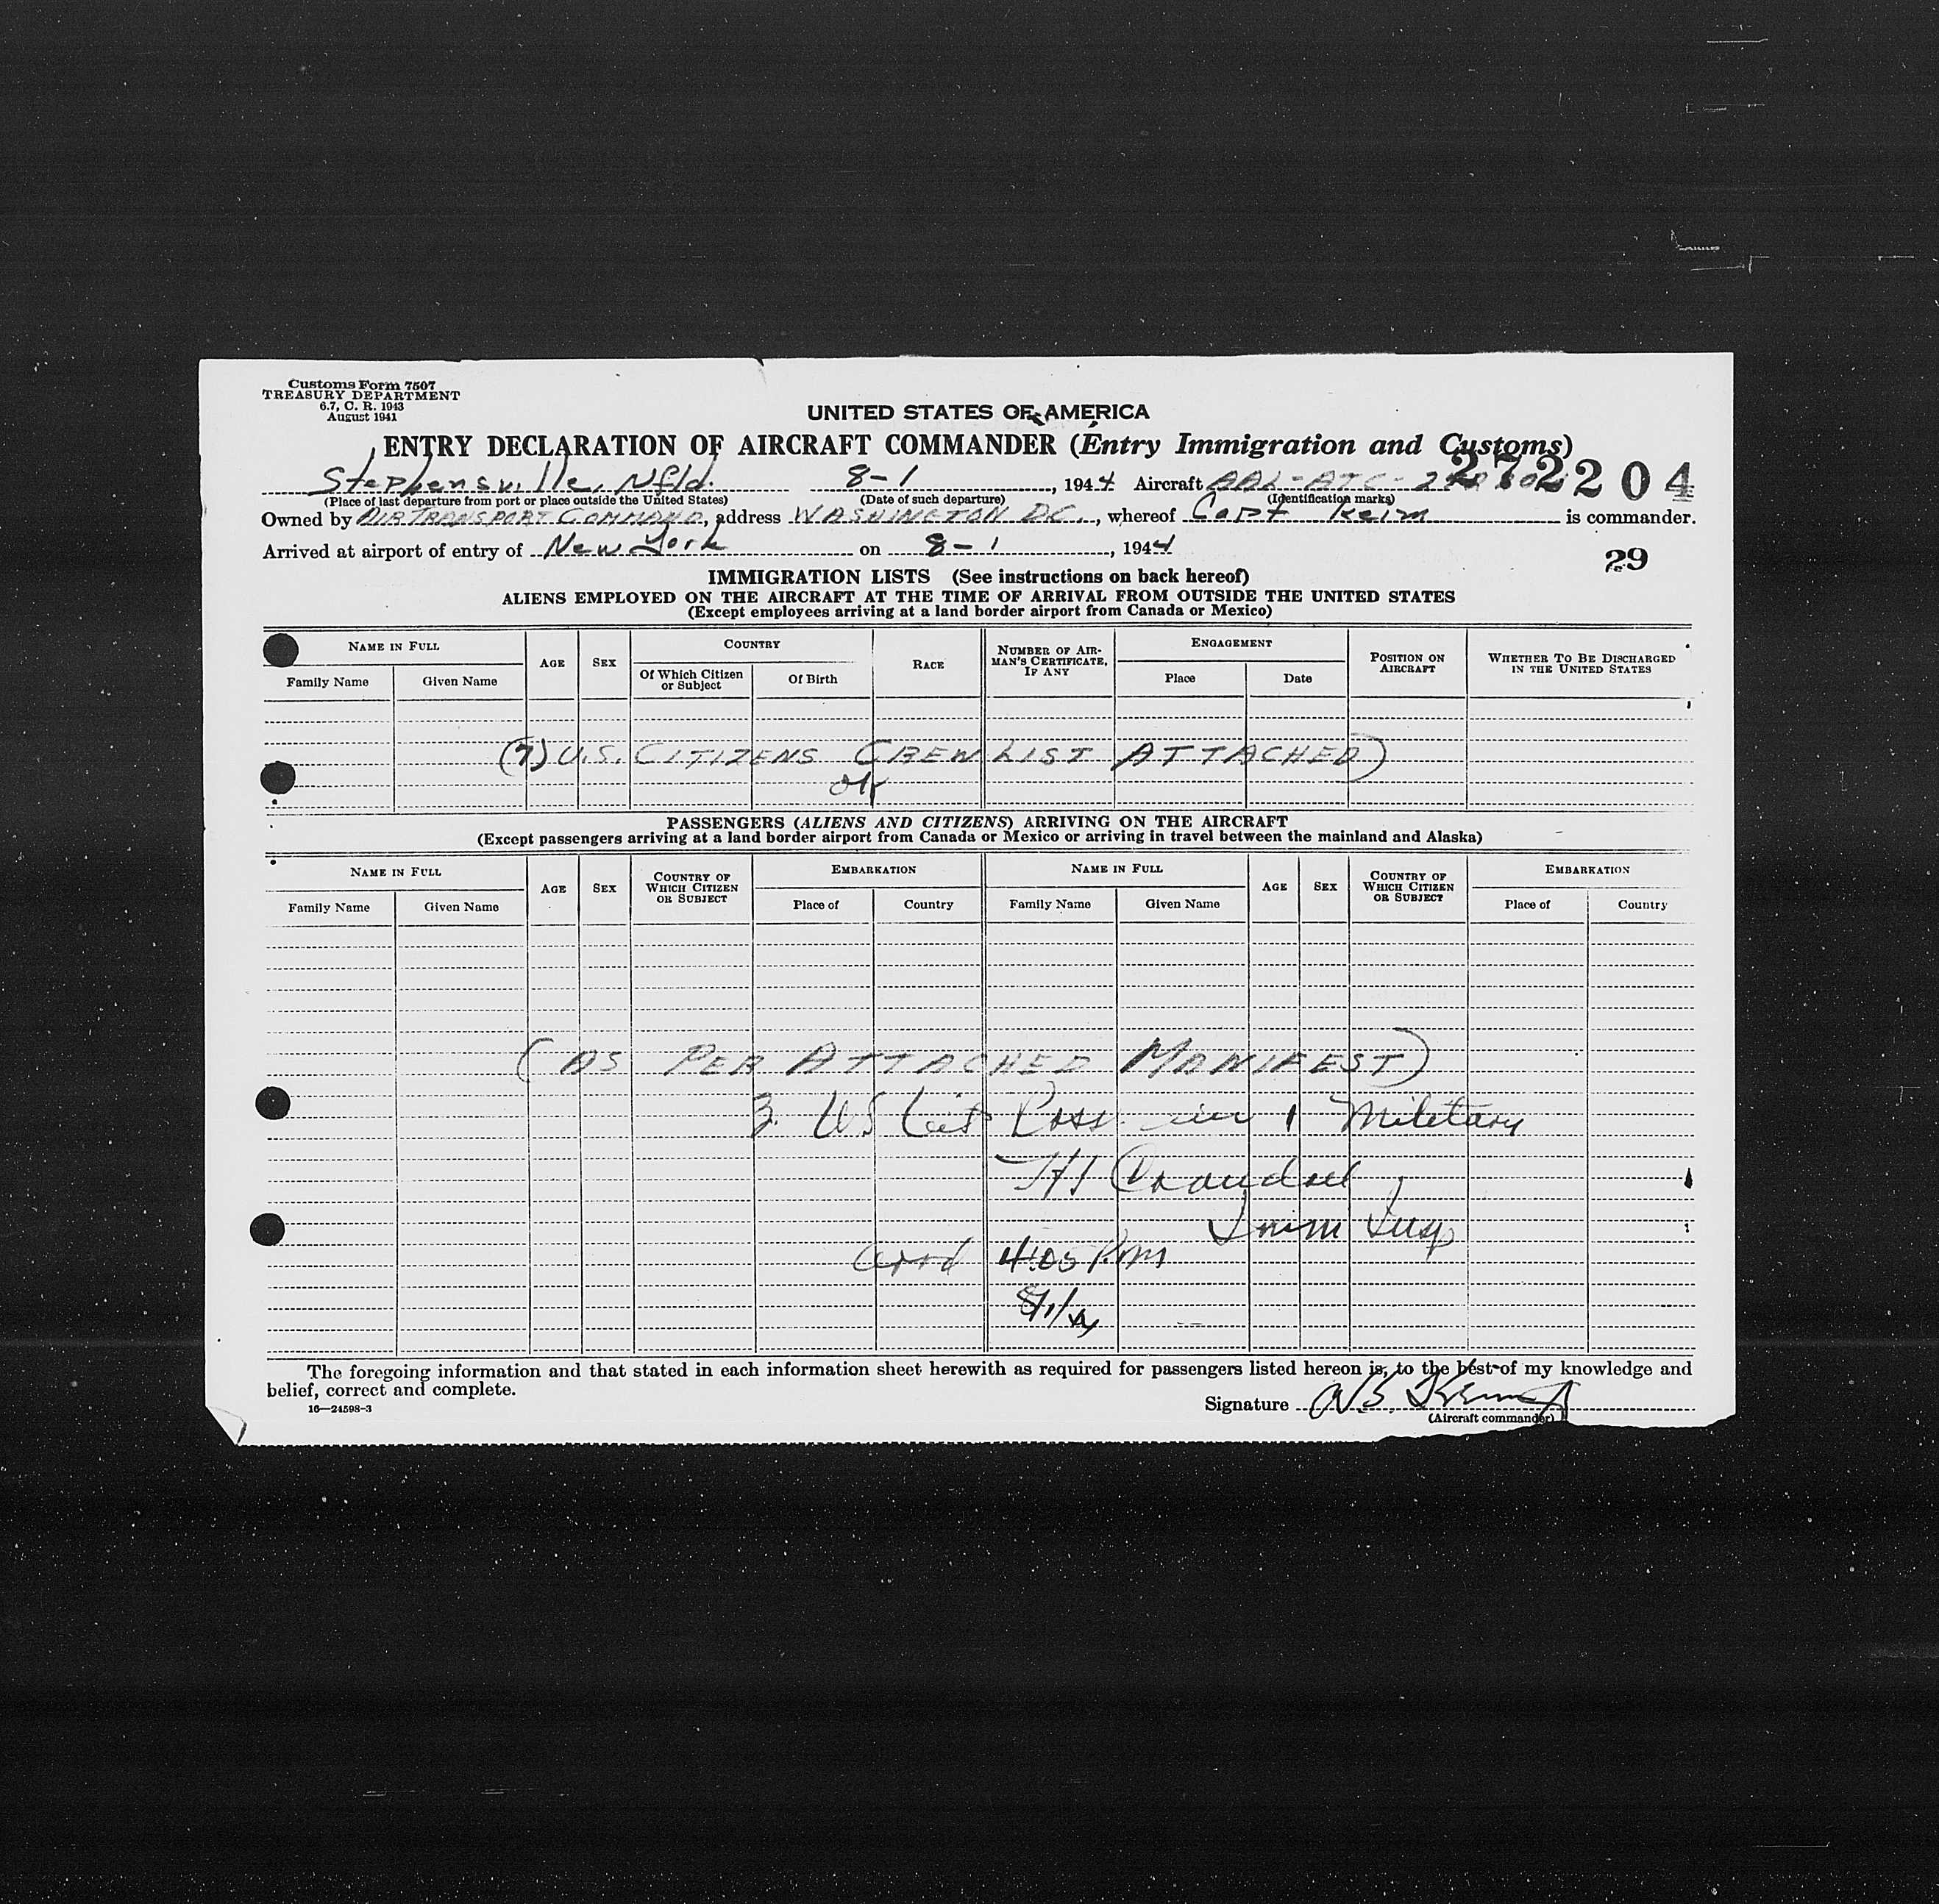 Customs Form 7507
TREASURY DEPARTMENT
6.7, C. R. 1943
August 1941
UNITED STATES OF AMERICA
ENTRY DECLARATION OF AIRCRAFT COMMANDER (Entry Immigration and Customs)
Stephensville, Nfld. 8-1, 1944 Aircraft AAL-ATC-
2 2 0 4
(Place of last departure from port or place outside the United States) (Date of such departure) (Identification marks)
Owned by AIR TRANSPORT COMMAND, address WASHINGTON DC., whereof Capt Keim is commander.
Arrived at airport of entry of New York on 8-1, 1944
29
IMMIGRATION LISTS (See instructions on back hereof)
ALIENS EMPLOYED ON THE AIRCRAFT AT THE TIME OF ARRIVAL FROM OUTSIDE THE UNITED STATES
(Except employees arriving at a land border airport from Canada or Mexico)
NAME IN FULL AGE SEX COUNTRY RACE NUMBER OF AIRMAN'S CERTIFICATE, IF ANY ENGAGEMENT POSITION ON AIRCRAFT WHETHER TO BE DISCHARGED IN THE UNITED STATES
Family Name Given Name Of Which Citizen or Subject Of Birth Place Date
(7) U.S. CITIZENS CREW LIST ATTACHED)
OK
PASSENGERS (ALIENS AND CITIZENS) ARRIVING ON THE AIRCRAFT
(Except passengers arriving at a land border airport from Canada or Mexico or arriving in travel between the mainland and Alaska)
NAME IN FULL AGE SEX COUNTRY OF WHICH CITIZEN OR SUBJECT EMBARKATION NAME IN FULL AGE SEX COUNTRY OF WHICH CITIZEN OR SUBJECT EMBARKATION
Family Name Given Name Place of Country Family Name Given Name Place of Country
(AS PER ATTACHED MANIFEST)
3 US Cit Pass 1 Military
Crandall
Imm Insp
Arrd 4:05 P.M
8/1/44
The foregoing information and that stated in each information sheet herewith as required for passengers listed hereon is, to the best of my knowledge and
belief, correct and complete.
16—24598-3
Signature
(Aircraft commander)